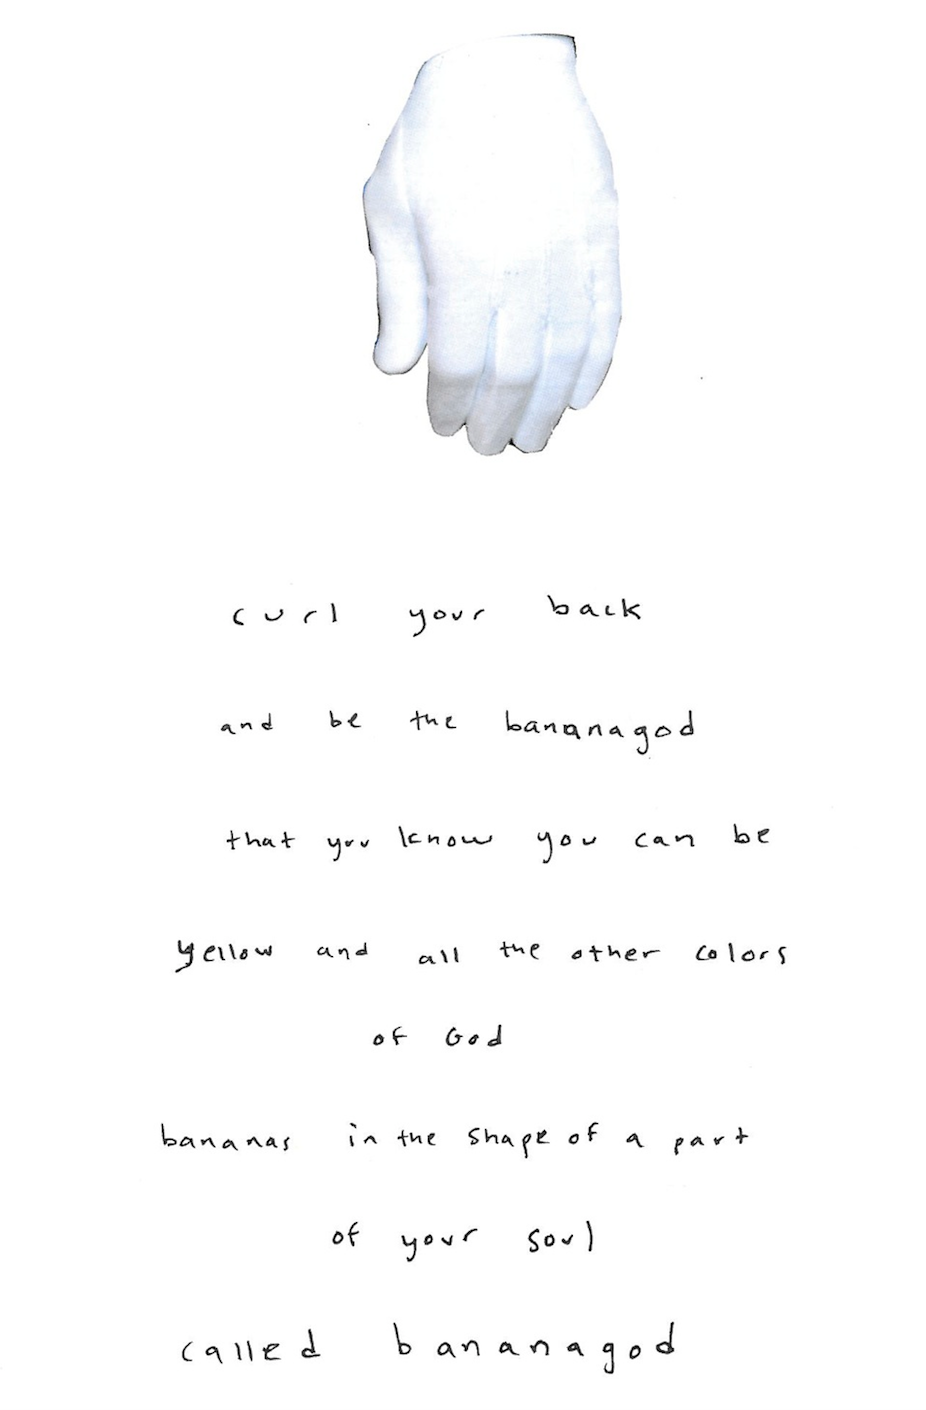 curl your back
and be the bananagod
that you know you can be
yellow and all the other colors
of God
bananas in the shape of a part
of your soul
called bananagod